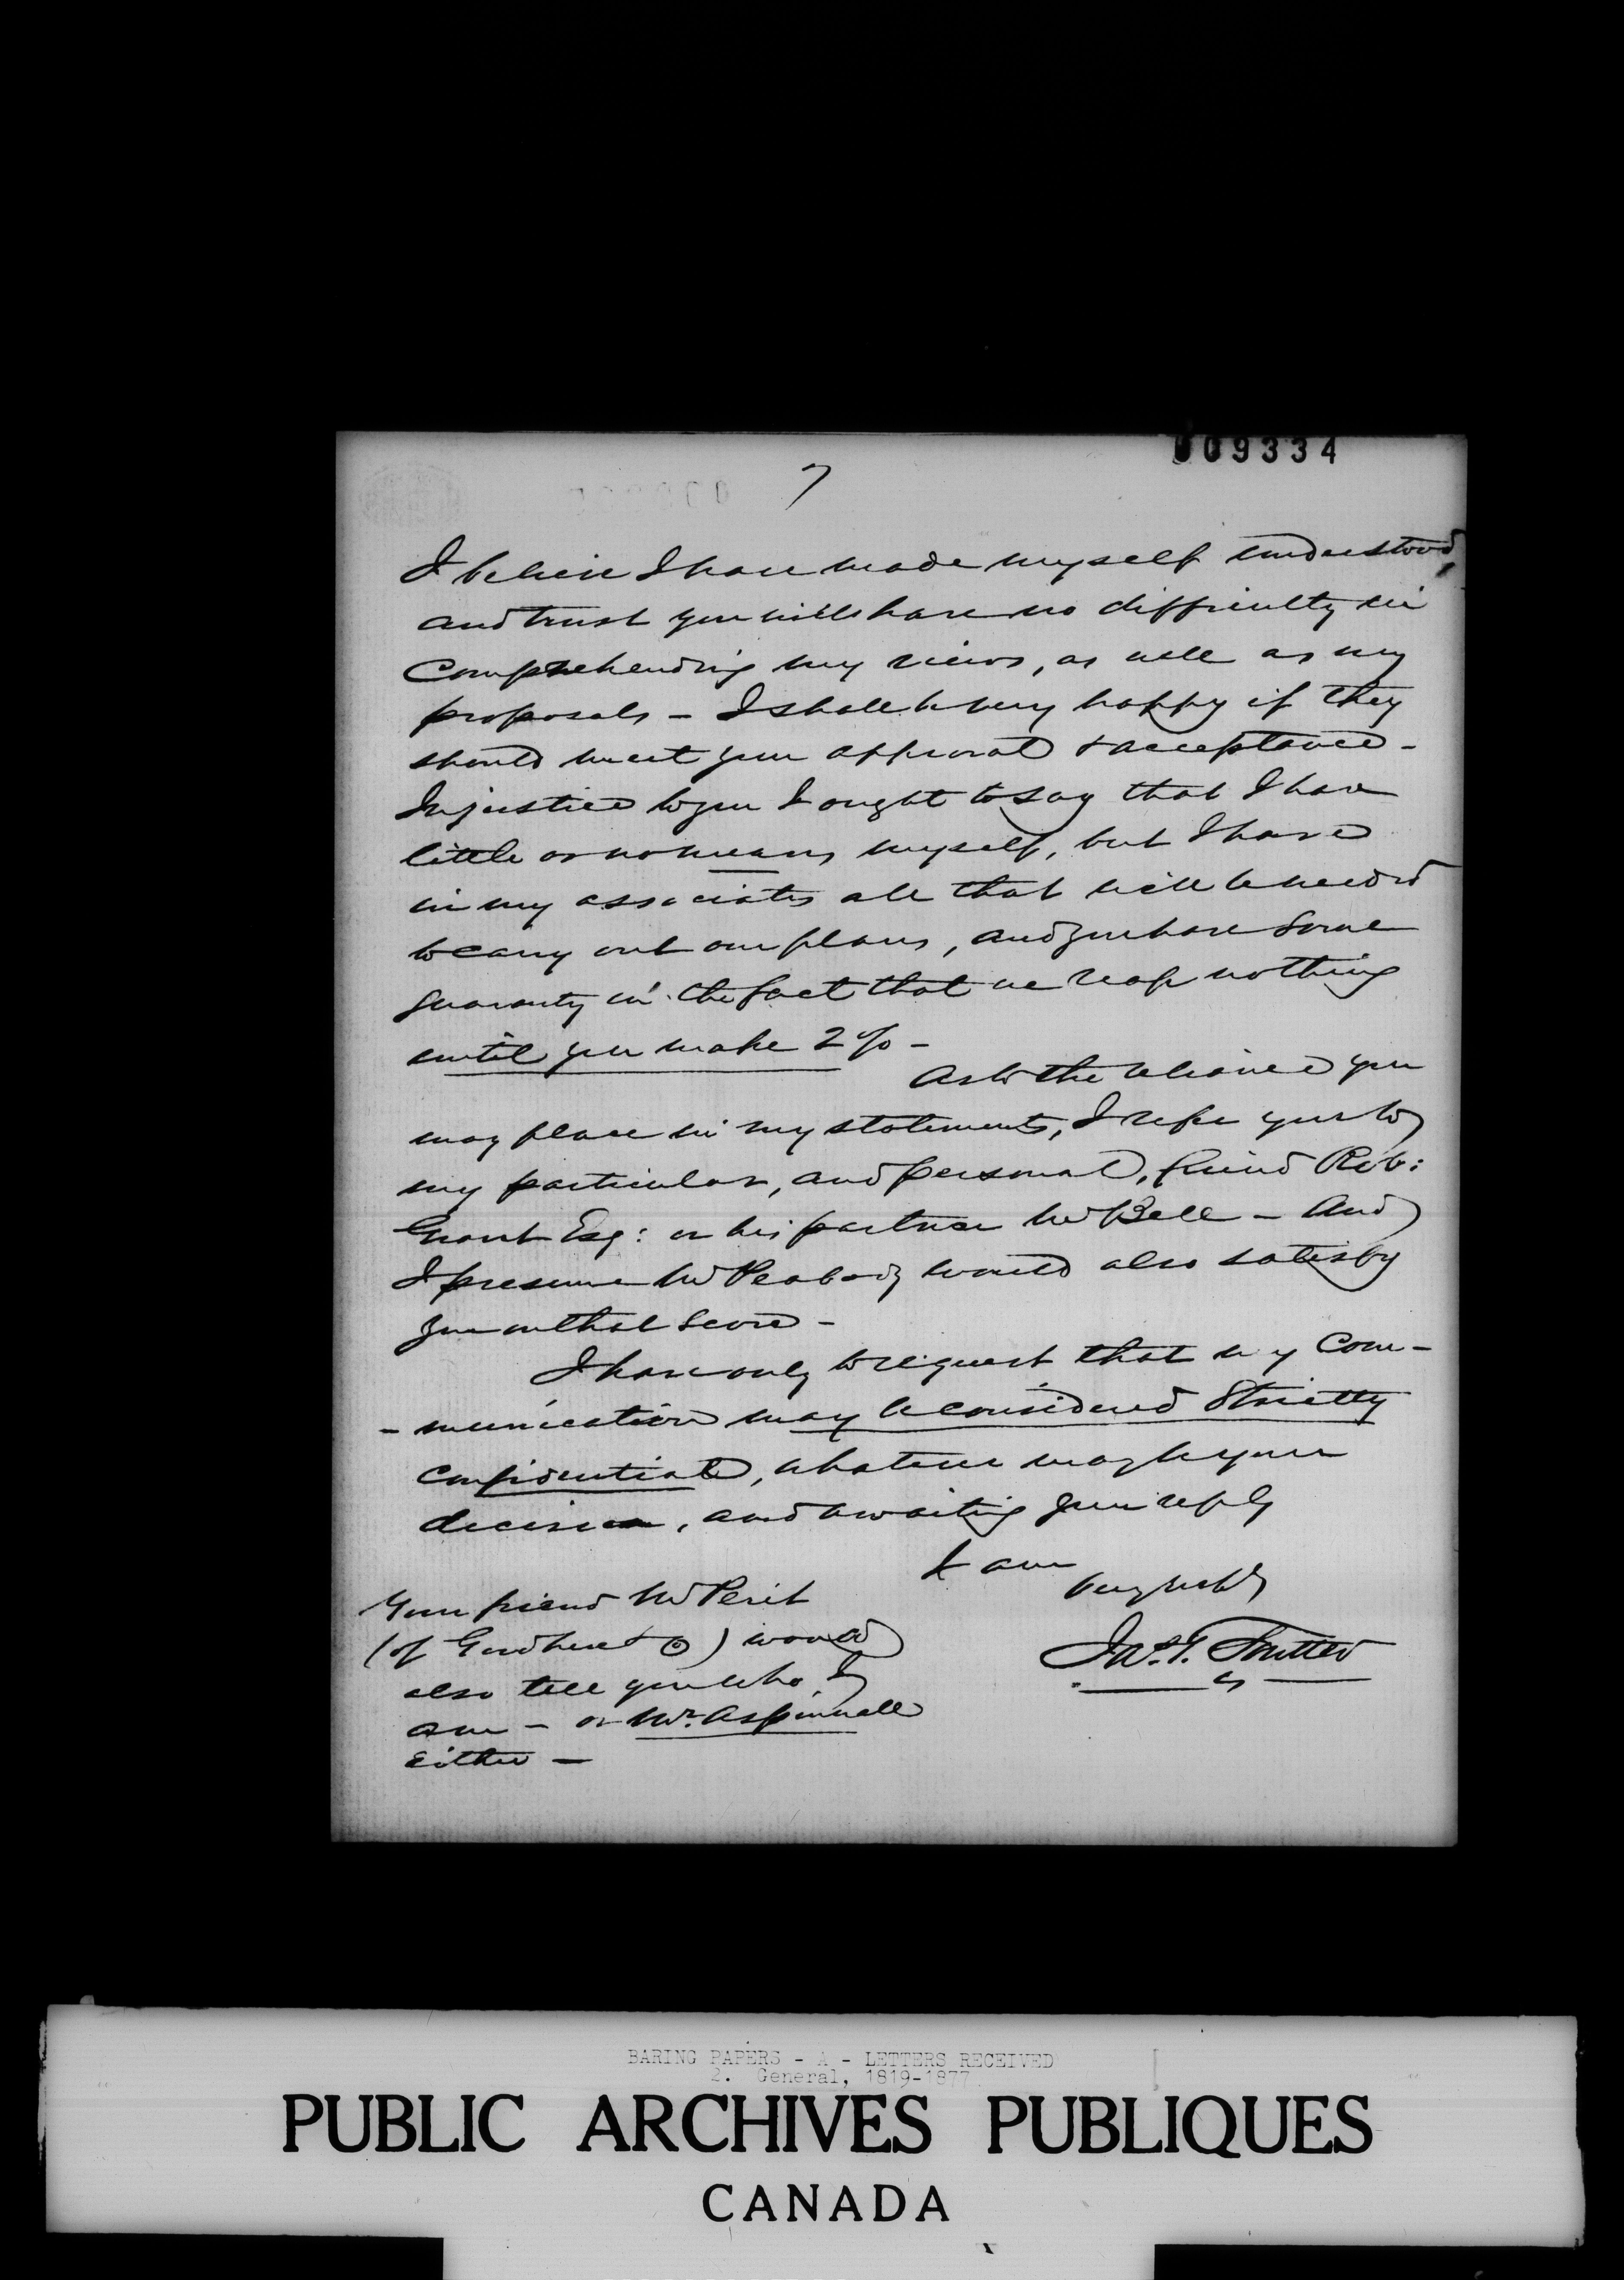 009334
7
I believe I have made myself understood,
and trust you will have no difficulty in
comprehending my views, as well as my
proposals – I shall be very happy if they
should meet your approval & acceptance –
In justice to you I ought to say that I have
little or no means myself, but I have
in my associates all that will be needed
to carry out our plans, and you have some
guaranty in the fact that we reap nothing
until you make 2 % –
As to the reliance you
may place in my statements, I refer you to
my particular, and personal, friend Rob:
Grant Esq: or his partner Mr Bell – And
I presume Mr Peabody would also satisfy
you on that score –
I have only to request that my com–
– munication may be considered strictly
confidential, whatever may be your
decision, and awaiting your reply
I am
very resply
Jas. T. Soutter
Your friend Mr Perit
(of Goodhue & Co) would
also tell you who I
am – or Mr. Aspinwall
either –
BARING PAPERS - A - LETTERS RECEIVED
2. General, 1819-1877
PUBLIC ARCHIVES PUBLIQUES
CANADA